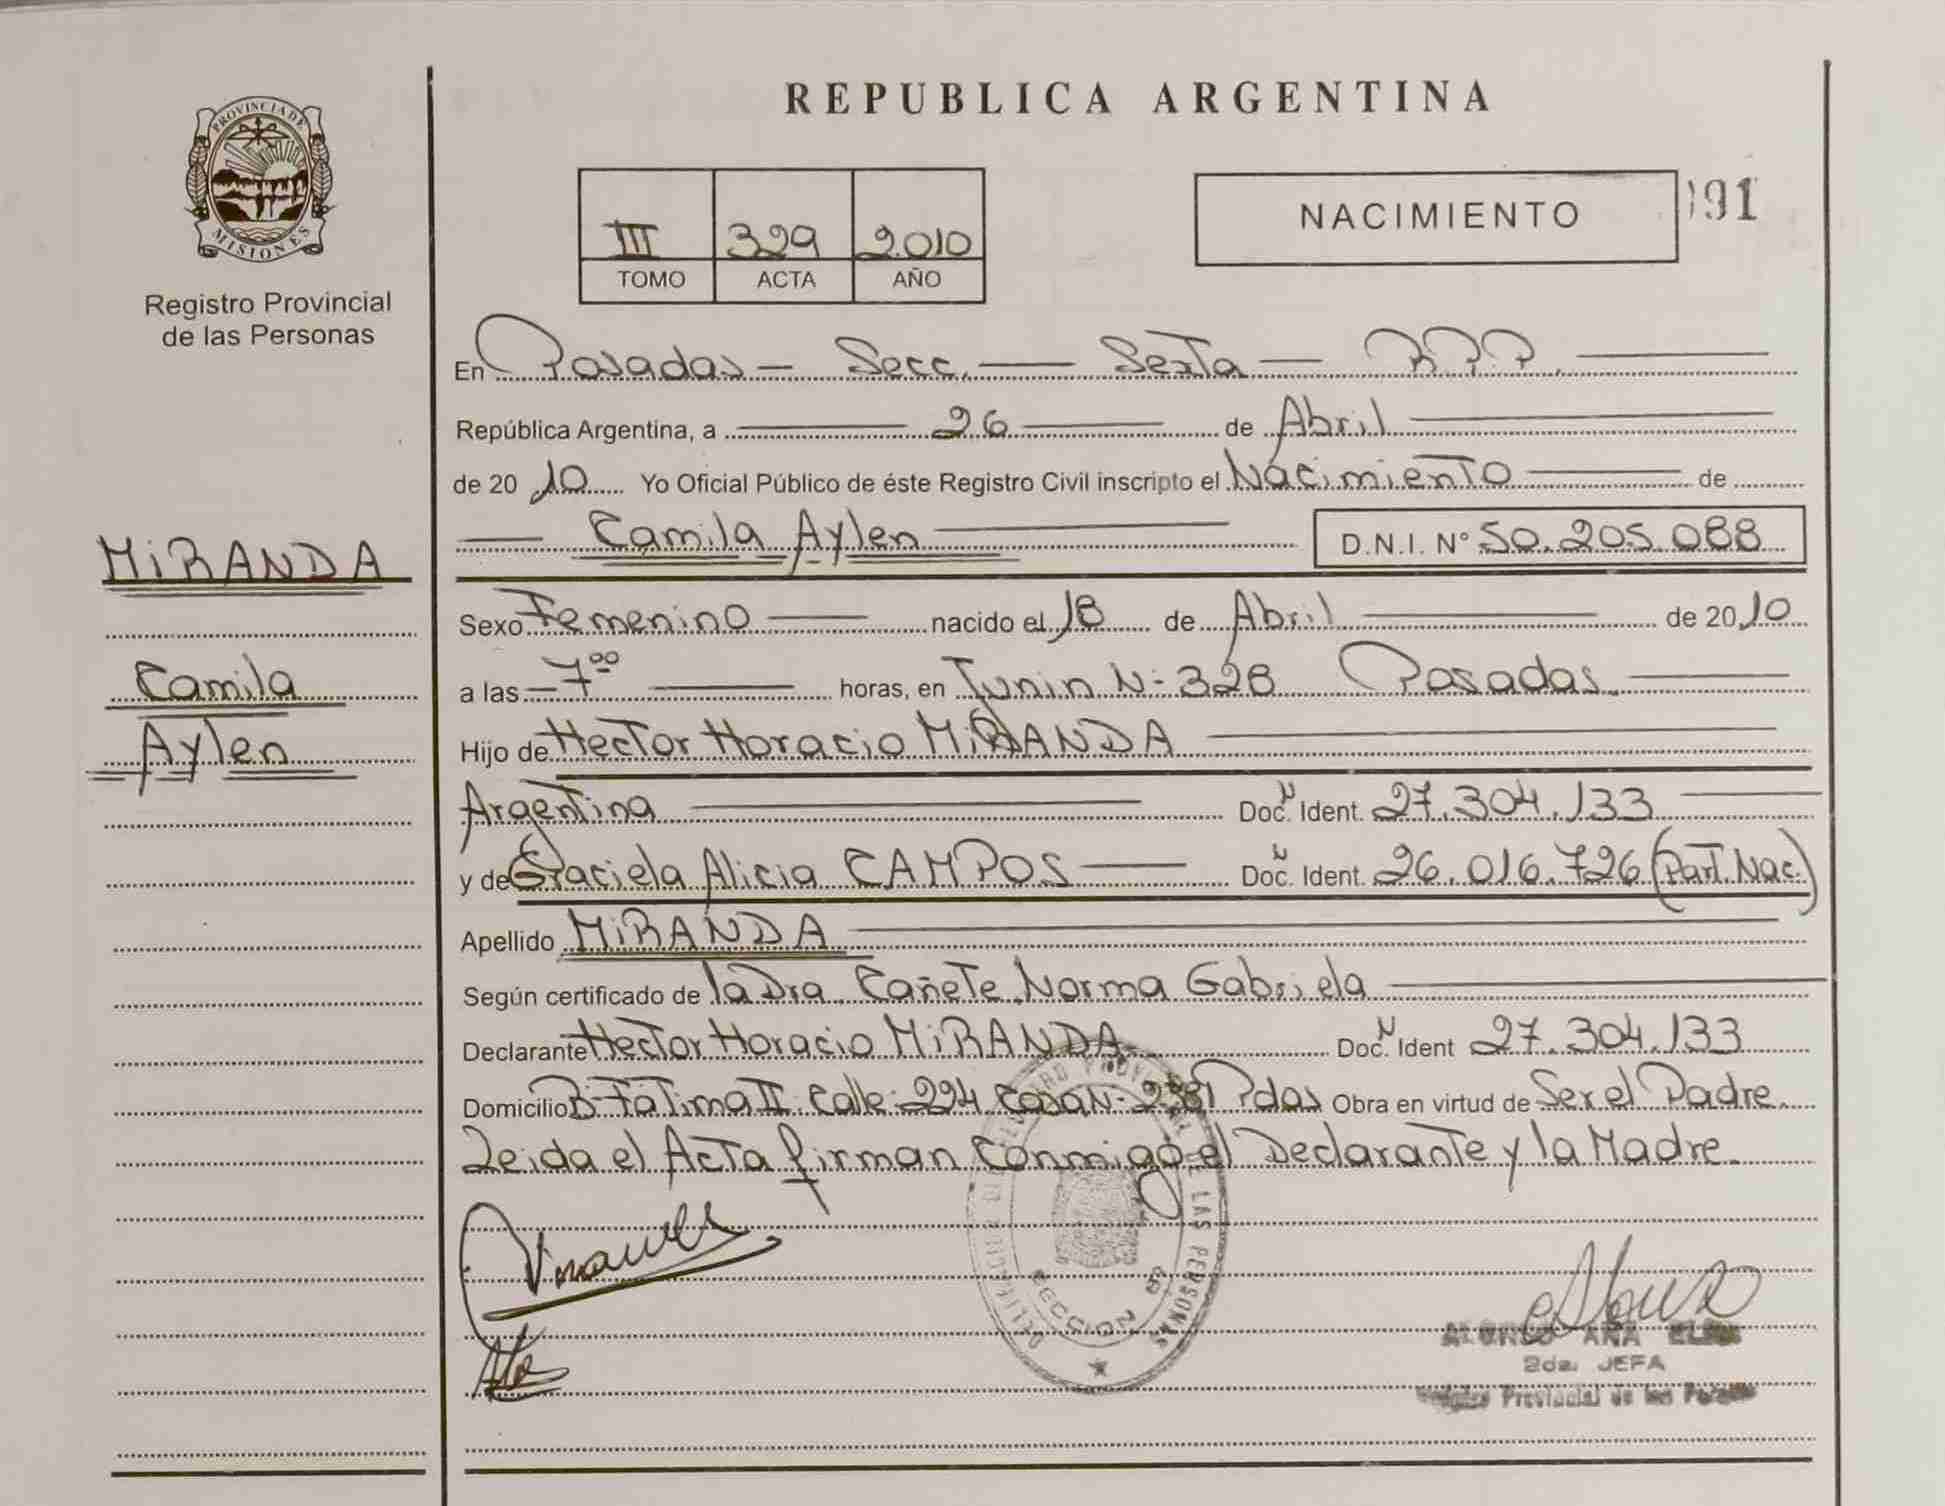 REPUBLICA ARGENTINA
PROVINCIA DE
MISIONES
Registro Provincial
de las Personas
III 329 2.010
TOMO ACTA AÑO
NACIMIENTO
191
En Posadas - Secc. - Sexta - R.P.P.
República Argentina, a 26 de Abril
de 20 10 Yo Oficial Público de éste Registro Civil inscripto el Nacimiento de
Camila Aylen D.N.I. N° 50.205.088
MiRANDA
Camila
Aylen
Sexo Femenino nacido el 18 de Abril de 20 10
a las 7⁰⁰ horas, en Junin N- 328 Posadas.
Hijo de Hector Horacio MiRANDA
Argentina Doc. N Ident. 27.304.133
y de Graciela Alicia CAMPOS Doc. N Ident. 26.016.726 (Part. Nac.)
Apellido MiRANDA
Según certificado de la Dra Cañete Norma Gabriela
Declarante Hector Horacio MiRANDA Doc. N Ident 27.304.133
Domicilio B- Fatima II Calle 224 Casa N- 2381 Pdas Obra en virtud de Ser el Padre.
Leida el Acta firman conmigo el Declarante y la Madre.
SECCION 6a
DE LAS PERSONAS
ALONSO ANA
2da. JEFA
Registro Provincial de las Personas